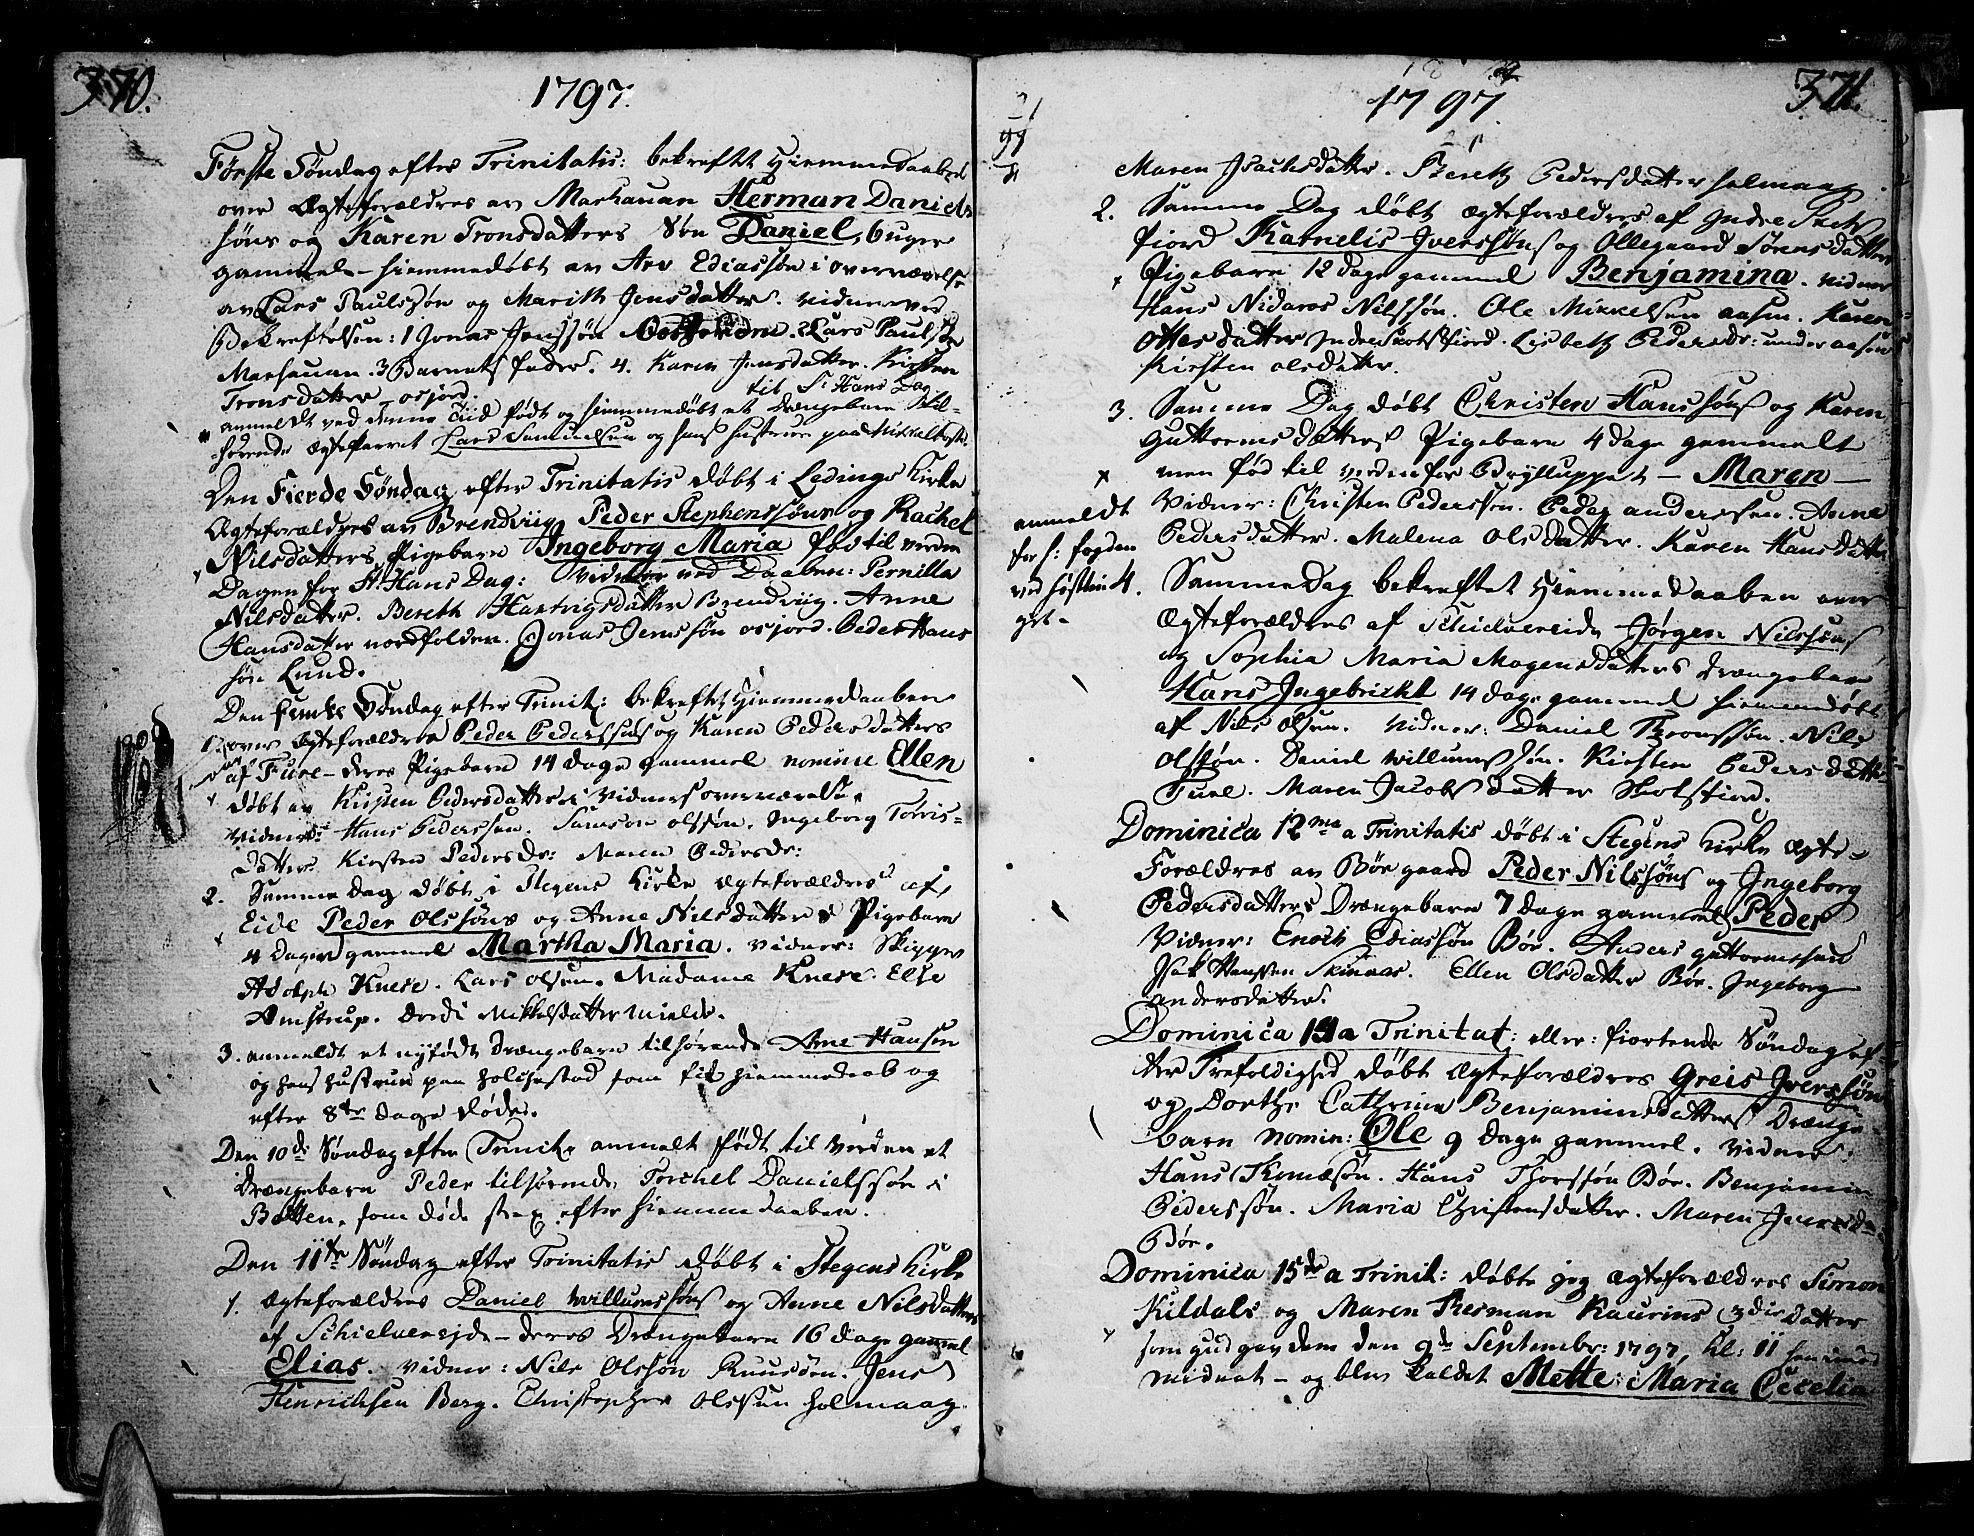 370.
1797.
Første Søndag efter Trinitatis: bekreftet Hiemmedaaben
over Ægteforældres av Marhauan Herman Daniels
søns og Karen Tronsdatters Søn Daniel, 6 uger
gammel – hiemmedøbt av Arv Ediassøn i overværelse
av Lars Paulssøn og Marith Jensdatter. Vidner ved
Bekreftelsen: 1 Jonas Jenssøn 2 Lars Paulssøn
Marhauan. 3 Peder. 4. Karen Jensdatter. Kirsten
Tronsdatter osjord.
til St Hans Dag
anmeldt ved denne Tiid født og hiemmedøbt et Drængebarn til-
hørende Ægteparret Lars Samuelsen og hans hustrue paa
Den Fierde Søndag efter Trinitatis døbt i Ledings Kirke
Ægteforældres av Brendviig Peder Stephenssøns og Rachel
Nilsdatters Pigebarn Ingeborg Maria fød til verden
Dagen for St Hans Dag: Vidner ved Daaben: Pernilla
Nilsdatter. Bereth Hartvigsdatter Brendviig. Anne
Hansdatter nordfolden. Jonas Jenssøn osjord. Peder Hans
søn Lund.
Den femte Søndag efter Trinit: bekreftet Hiemmedaaben
1. over Ægteforældres Peder Pederssøns og Karen Pedersdatters
af Fure – deres Pigebarn 14 dage gammel nomine Ellen
døbt av Kirsten Pedersdatter i Vidners overværelse.
Vidner: Hans Pederssen. Samson Olssøn. Ingeborg Torris-
datter Kirsten Pedersdr: Maren Pedersdr:
2. Samme Dag døbt i Stegens Kirke Ægteforældres af
Eide Peder Olssøns og Anne Nilsdatters Pigebarn
4 Dager gammel Martha Maria. Vidner: Skipper
Adolph Knese. Lars Olsen. Madame Knese. Else
Amstrup. Dordi Mikkelsdatter Mielde.
3. anmeldt et nyfødt Drængebarn tilhørende Arne Hansen
og hans hustrue paa Holchestad som fik hiemmedaab og
efter 8te Dage døde.
Den 10de Søndag efter Trinit. anmelt født til Verden et
Drængebarn Peder tilhørende Torchel Danielssøn i
Botten, som døde strax efter hiemmedaaben.
Den 11te Søndag efter Trinitatis døbt i Stegens Kirke
1. Ægteforældres Daniel Willumssøns og Anne Nilsdatters
af Schielvereide – deres Drængebarn 16 dage gammel
Elias. Vidner: Nils Olssøn. Jens
Henrichsen Berg. Christopher Olssen Holmaag.
371.
1797.
Maren Isachsdatter. Bereth Pedersdatter Holmaag.
2. Samme Dag døbt Ægteforældres af Indre
fiord Karnelis Iverssøns og Ollegaard Sørensdatters
Pigebarn 12 dage gammel Benjamina. Vidner
Hans Nidaros Nilssøn. Ole Mikkelsen aasen. Karen
Ottesdatter Inderskotsfiord. Lisbeth Pedersdr: underaasen
Kirsten olsdatter.
3. Samme Dag døbt Christen Hanssøns og Karen
Guttormsdatters Pigebarn 4 dage gammelt
men fød til verden for Brylluppet – Maren –
Vidner: Christen Pederssøn. Peder anderssen. Anne
Pedersdatter. Malena Olsdatter. Karen Hansdatter
anmeldt
for h: fogden
ved høstting
get –
4. Samme Dag bekreftet Hiemmedaaben over
Ægteforældres af Schielvereide Jørgen Nilssøns
og Sophia Maria Mogensdatters Drængebarn
Hans Ingebricht 14 dage gammel hiemmedøbt
af Nils Olsen. Vidner: Daniel Thronssøn. Nils
Olssøn. Daniel Willumssøn. Kirsten Pedersdatter
Fure. Maren Jacobsdatter Skotsfiord.
Dominica 12ma a Trinitatis døbt i Stegens Kirke Ægte-
Forældres av Bøe gaard Peder Nilssøns og Ingeborg
Pedersdatters Drængebarn 7 dage gammel Peder
Vidner: Enoch Ediassøn Bøe. Anders guttormssen
Isak Hanssen Skinnas. Ellen Olsdatter Bøe. Ingeborg
andersdatter.
Dominica a Trinitat: eller: fiortende Søndag ef-
ter Trefoldighed døbt Ægteforældres Greis Iverssøn
og Dorthe Cathrina Benjaminsdatters Drænge-
barn nomin: Ole 9 dage gammel. Vidner:
Hans Thomæsøn. Hans Thorssøn Bøe. Benjamin
Pederssøn. Maria Christensdatter. Maren Iversdr:
Bøe.
Dominica 15de a Trinit: døbte jeg Ægteforældres Simon
Kildals og Maren Therman Kaurins 3die Datter
som gud gav dem den 9de Septembr: 1797, kl: 11 henimod
midnat – og blev kaldet Mette: Maria Cecelia